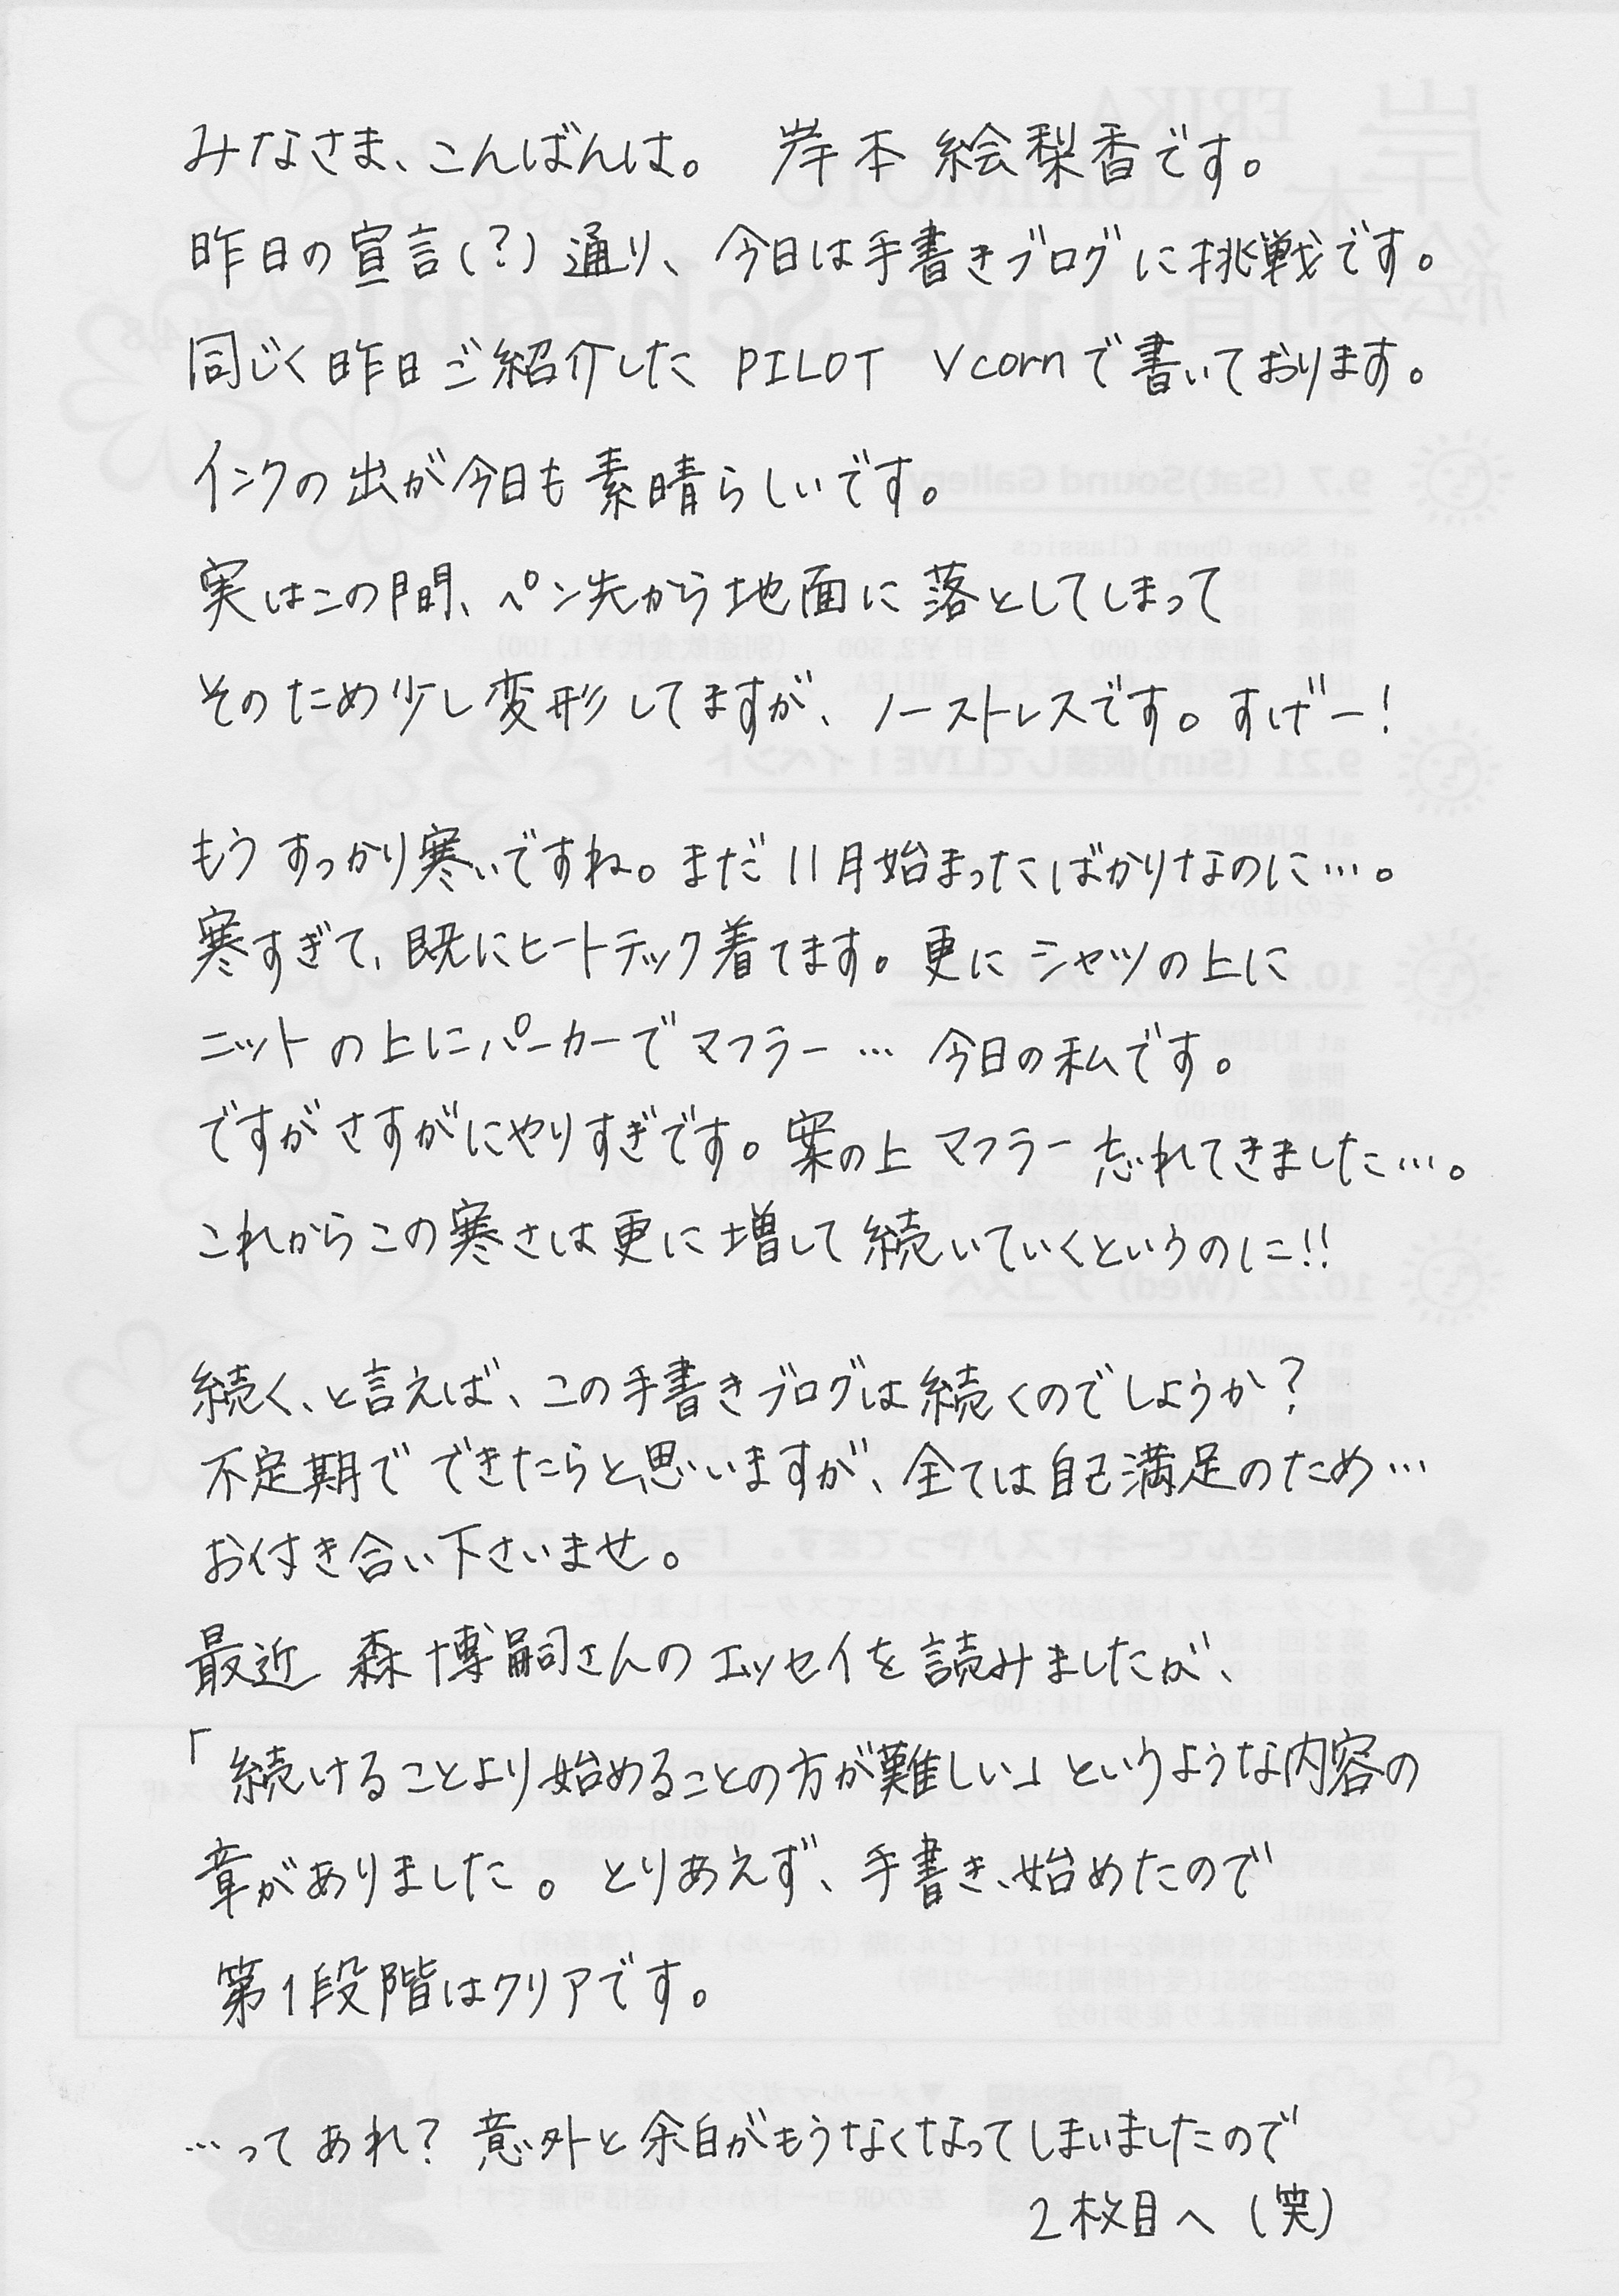 みなさま、こんばんは。 岸本 絵梨香です。
昨日の宣言(?)通り、今日は手書きブログに挑戦です。
同じく昨日ご紹介した PILOT Vcornで書いております。
インクの出が今日も素晴らしいです。
実はこの間、ペン先から地面に落としてしまって
そのため少し変形してますが、ノーストレスです。すげー!
もうすっかり寒いですね。まだ11月始まったばかりなのに…。
寒すぎて、既にヒートテック着てます。更にシャツの上に
ニットの上にパーカーでマフラー… 今日の私です。
ですがさすがにやりすぎです。案の上マフラー忘れてきました…。
これからこの寒さは更に増して続いていくというのに!!
続く、と言えば、この手書きブログは続くのでしょうか?
不定期でできたらと思いますが、全ては自己満足のため…
お付き合い下さいませ。
最近 森博嗣さんのエッセイを読みましたが、
「続けることより始めることの方が難しい」というような内容の
章がありました。とりあえず、手書き、始めたので
第1段階はクリアです。
…ってあれ?意外と余白がもうなくなってしまいましたので
2枚目へ(笑)